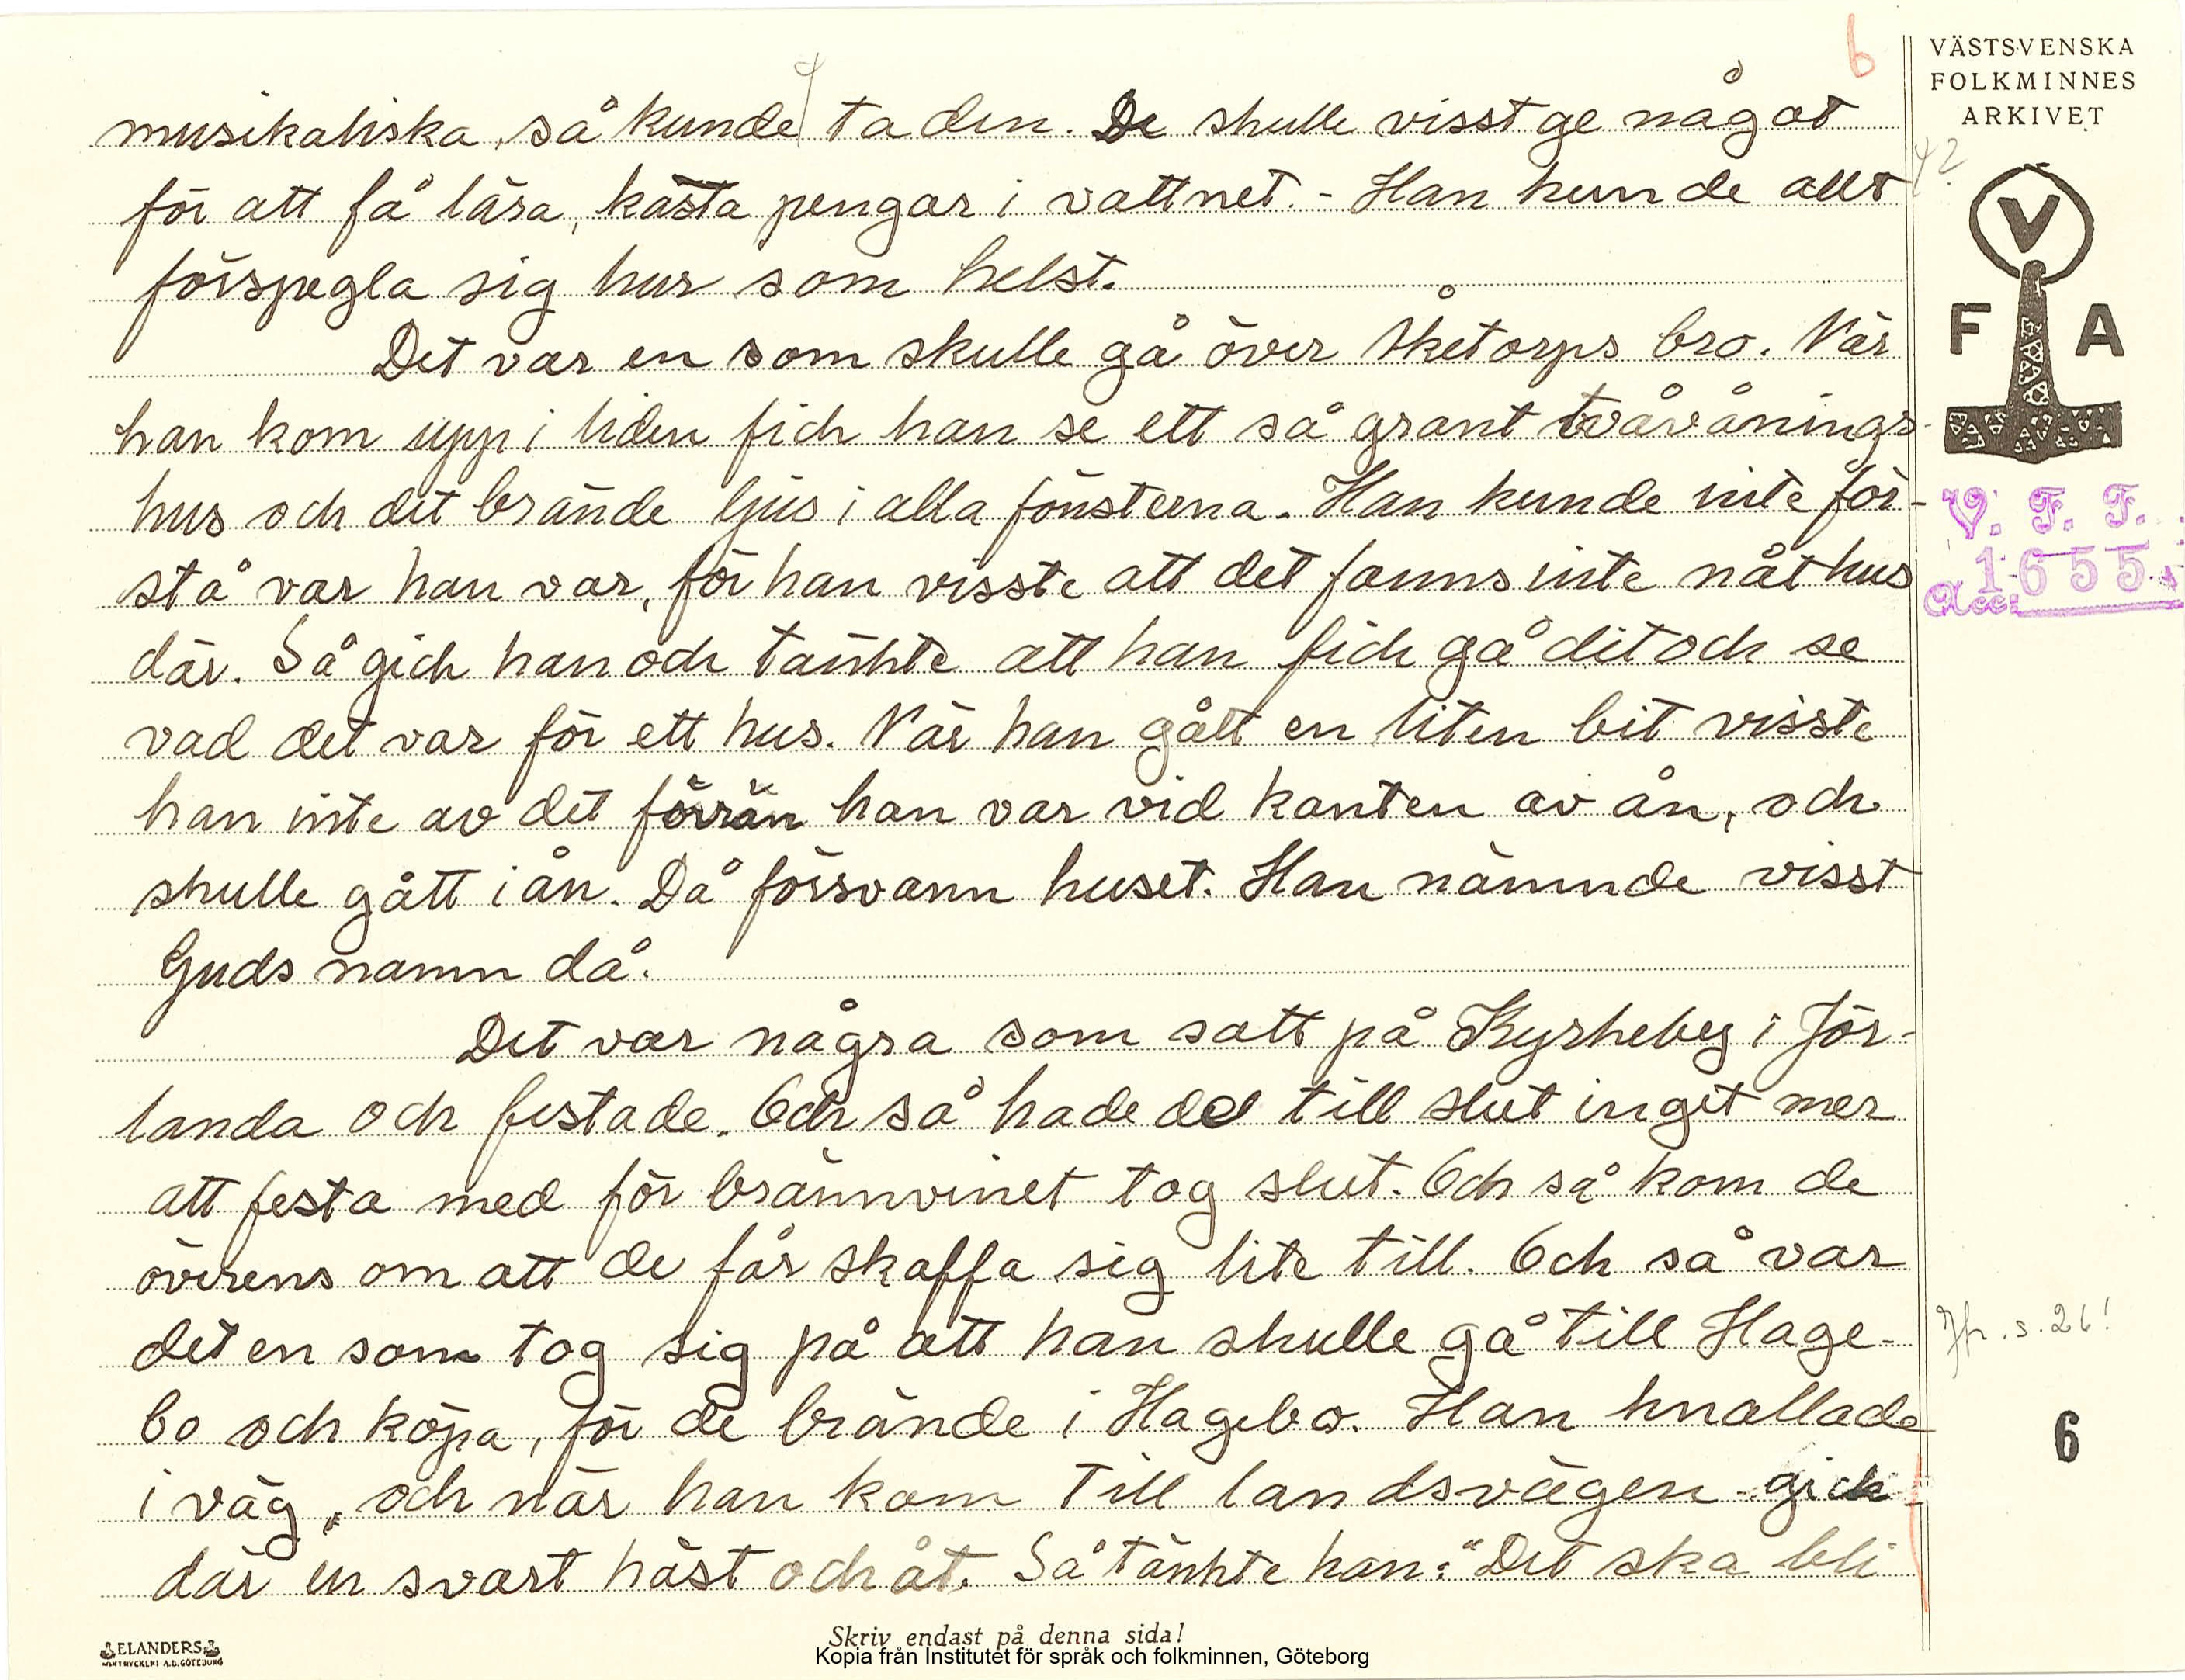 6
VÄSTSVENSKA
FOLKMINNES
ARKIVET
musikaliska, så kunde ta den. De skulle visst ge något
för att få lära, kasta pengar i vattnet. - Han kunde allt
förspegla sig hur som helst.
Det var en som skulle gå över Åketorps bro. När
han kom upp i liden fick han se ett så grant tvåvånings-
hus och det brände ljus i alla fönsterna. Han kunde inte för-
stå var han var, för han visste att det fanns inte nåt hus
där. Så gick han och tänkte att han fick gå dit och se
vad det var för ett hus. När han gått en liten bit visste
han inte av det förrän han var vid kanten av ån, och
skulle gått i ån. Då försvann huset. Han nämnde visst
Guds namn då.
Det var några som satt på Kyrkeby i Jör-
landa och festade. Och så hade de till slut inget mer
att festa med för brännvinet tog slut. Och så kom de
överens om att de får skaffa sig lite till. Och så var
det en som tog sig på att han skulle gå till Hage-
bo och köpa, för de brände i Hagebo. Han knallade
i väg, och när han kom till landsvägen gick
där en svart häst och åt. Så tänkte han: "Det ska bli
4?
V
F A
V. F. F.
Acc: 1655
Jfr. s. 26!
6
ELANDERS
Skriv endast på denna sida!
Kopia från Institutet för språk och folkminnen, Göteborg